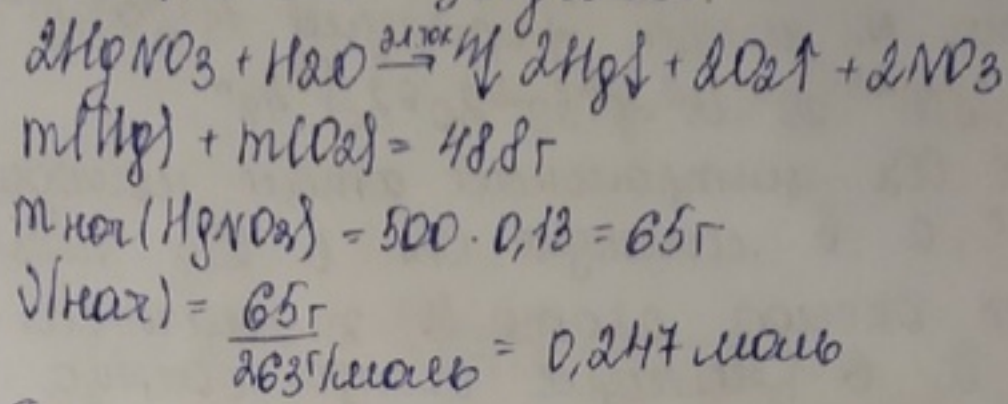 2HgNO3 + H2O эл ток → 2Hg↓ + 2O2↑ + 2NO3
m(Hg) + m(O2) = 48,8г
m нач (HgNO3) = 500 · 0,13 = 65г
ν(нач) = 65г / 263г/моль = 0,247 моль